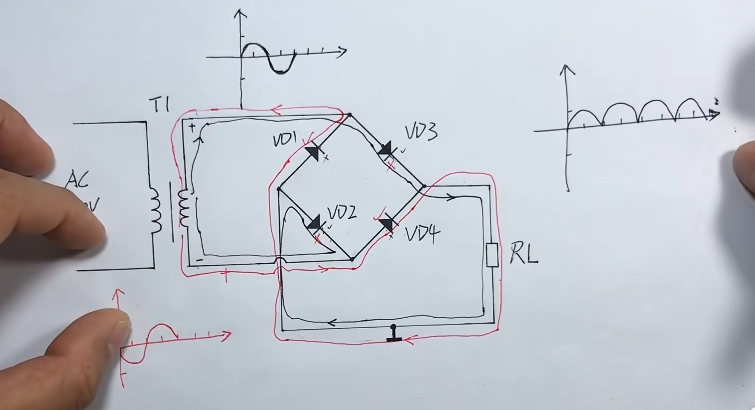 T1
VD1
VD3
AC
VD2
VD4
RL
+
-
+